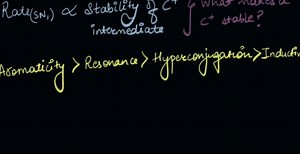 Rate(SN1) ∝ Stability of C⁺ { What makes a
intermediate C⁺ stable?
Aromaticity > Resonance > Hyperconjugation > Inducti